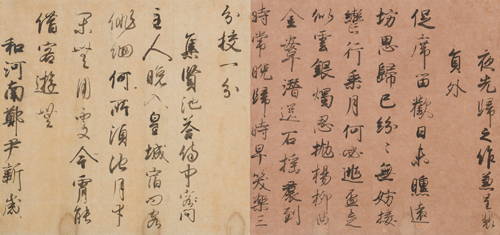 夜先歸之作兼呈裴
員外
促席留歡日未曛遠
坊思歸已紛〻無妨按
轡行乘月何必逃盃走
似雲銀燭忍拋楊柳曲
金鞍潛送石榴裙到
時常晚歸時早笑樂三
分校一分
集賢池答侍中問
主人晚入皇城宿問客
徘徊何所須池月幸
閑無用處今宵能
借客遊無
和河南鄭尹新歲